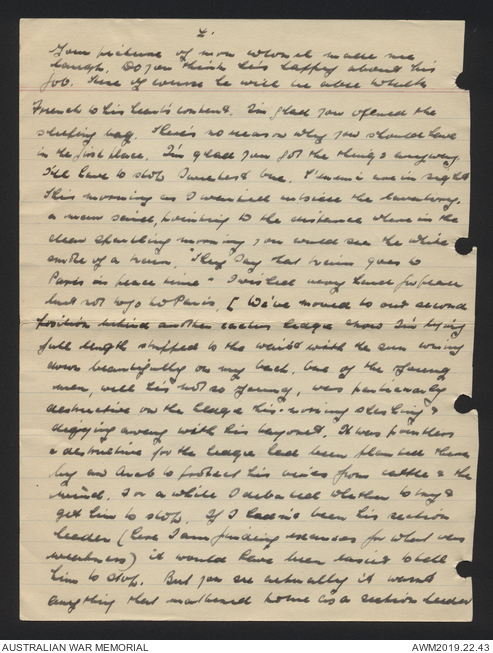 Your picture of mon colonel made me
laugh. Do you think he's happy about his
job. Then of course he will be able to talk
French to his heart's content. I'm glad you opened the
sleeping bag. There's no reason why you should have
in the first place. I'm glad you got the things anyway.
I'll have to stop
This morning as I waited outside the lavatory,
a man said, pointing to the distance where in the
clear sparkling morning you could see the white
smoke of a train, "They say that train goes to
Paris in peace time" I wished very hard for peace
but not to go to Paris. [ We've moved to our second
position behind another cactus hedge and I'm lying
full length stripped to the waist with the sun
down beautifully on my back. One of the young
men, well he's not so young, was particularly
destructive on the hedge this morning slashing &
digging away with his bayonet. It was pointless
& destructive for the hedge had been planted there
by an Arab to protect his vines from cattle & the
wind. For a while I debated whether to try &
get him to stop. If I hadn't been his section
leader (here I am finding excuses for what was
weakness) it would have been easier to tell
him to stop. But you see actually it wasn't
anything that mattered to me as a section leader
AUSTRALIAN WAR MEMORIAL
AWM2019.22.43